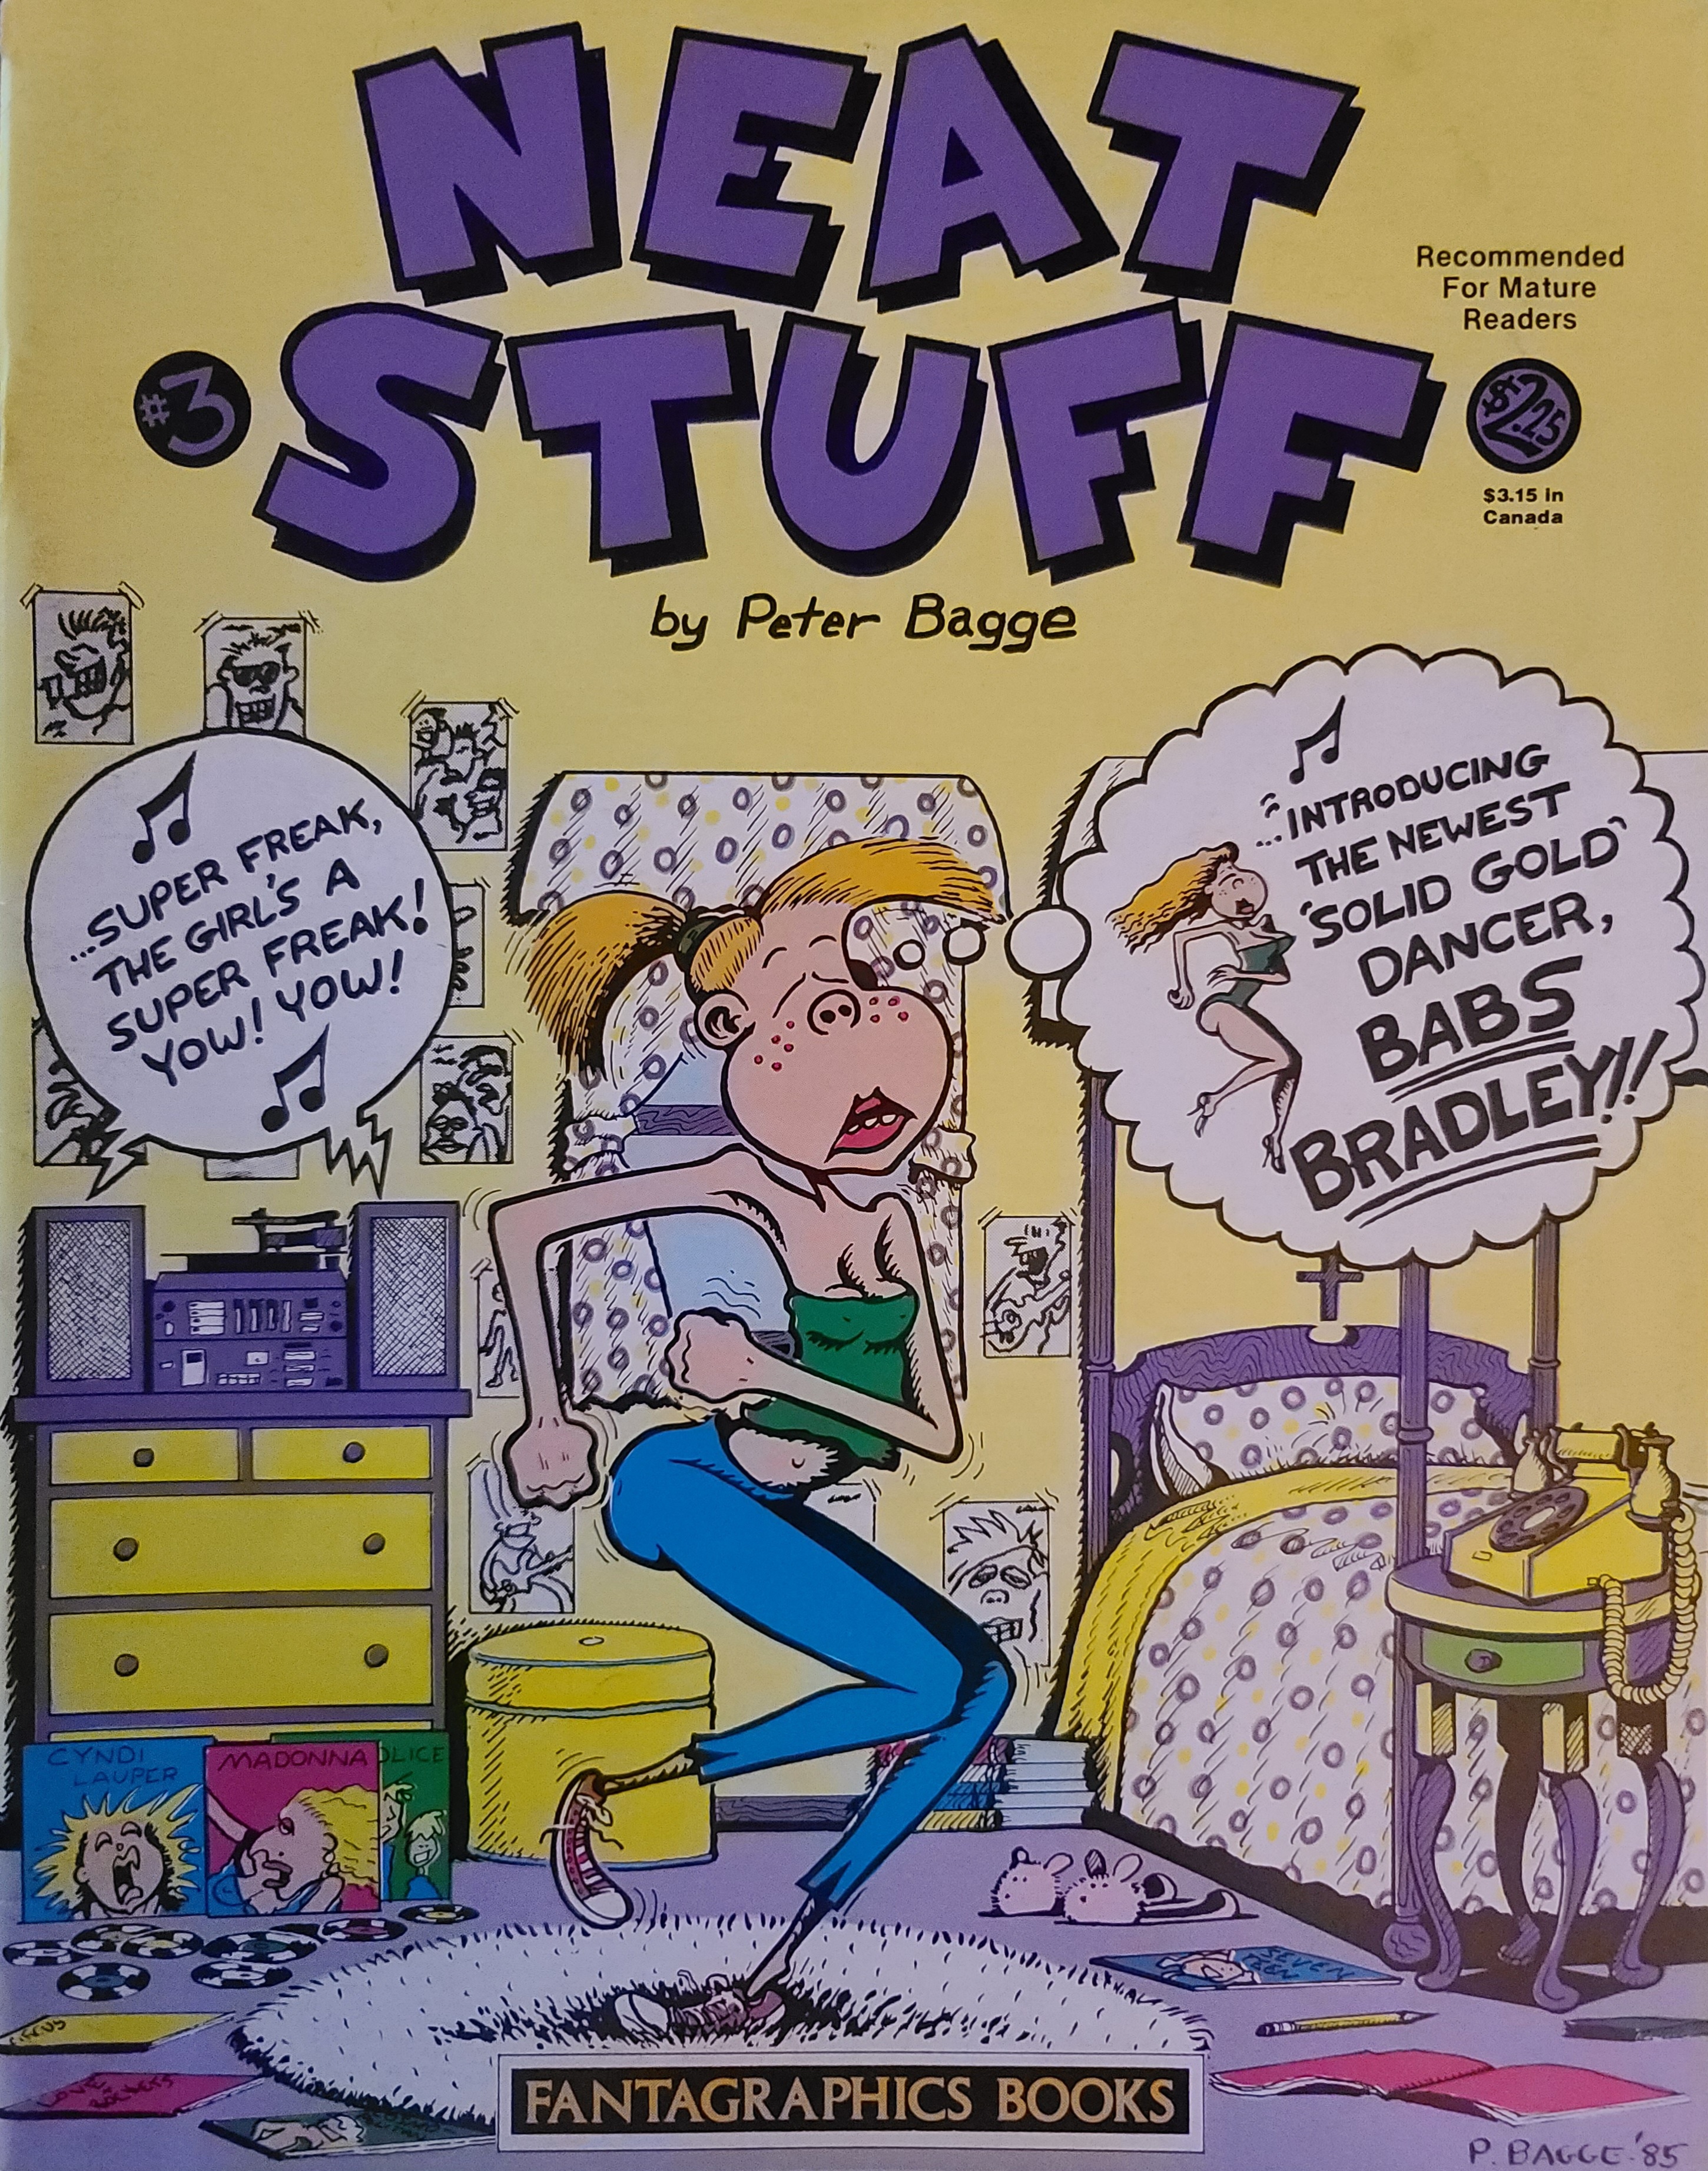 NEAT
STUFF
#3
Recommended
For Mature
Readers
$2.25
$3.15 in
Canada
by Peter Bagge
...SUPER FREAK,
THE GIRL'S A
SUPER FREAK!
YOW! YOW!
..."INTRODUCING
THE NEWEST
'SOLID GOLD'
DANCER,
BABS
BRADLEY!!
CYNDI
LAUPER
MADONNA
OLICE
SEVEN
TEEN
CIRCUS
LOVE &
ROCKETS
FANTAGRAPHICS BOOKS
P. BAGGE '85